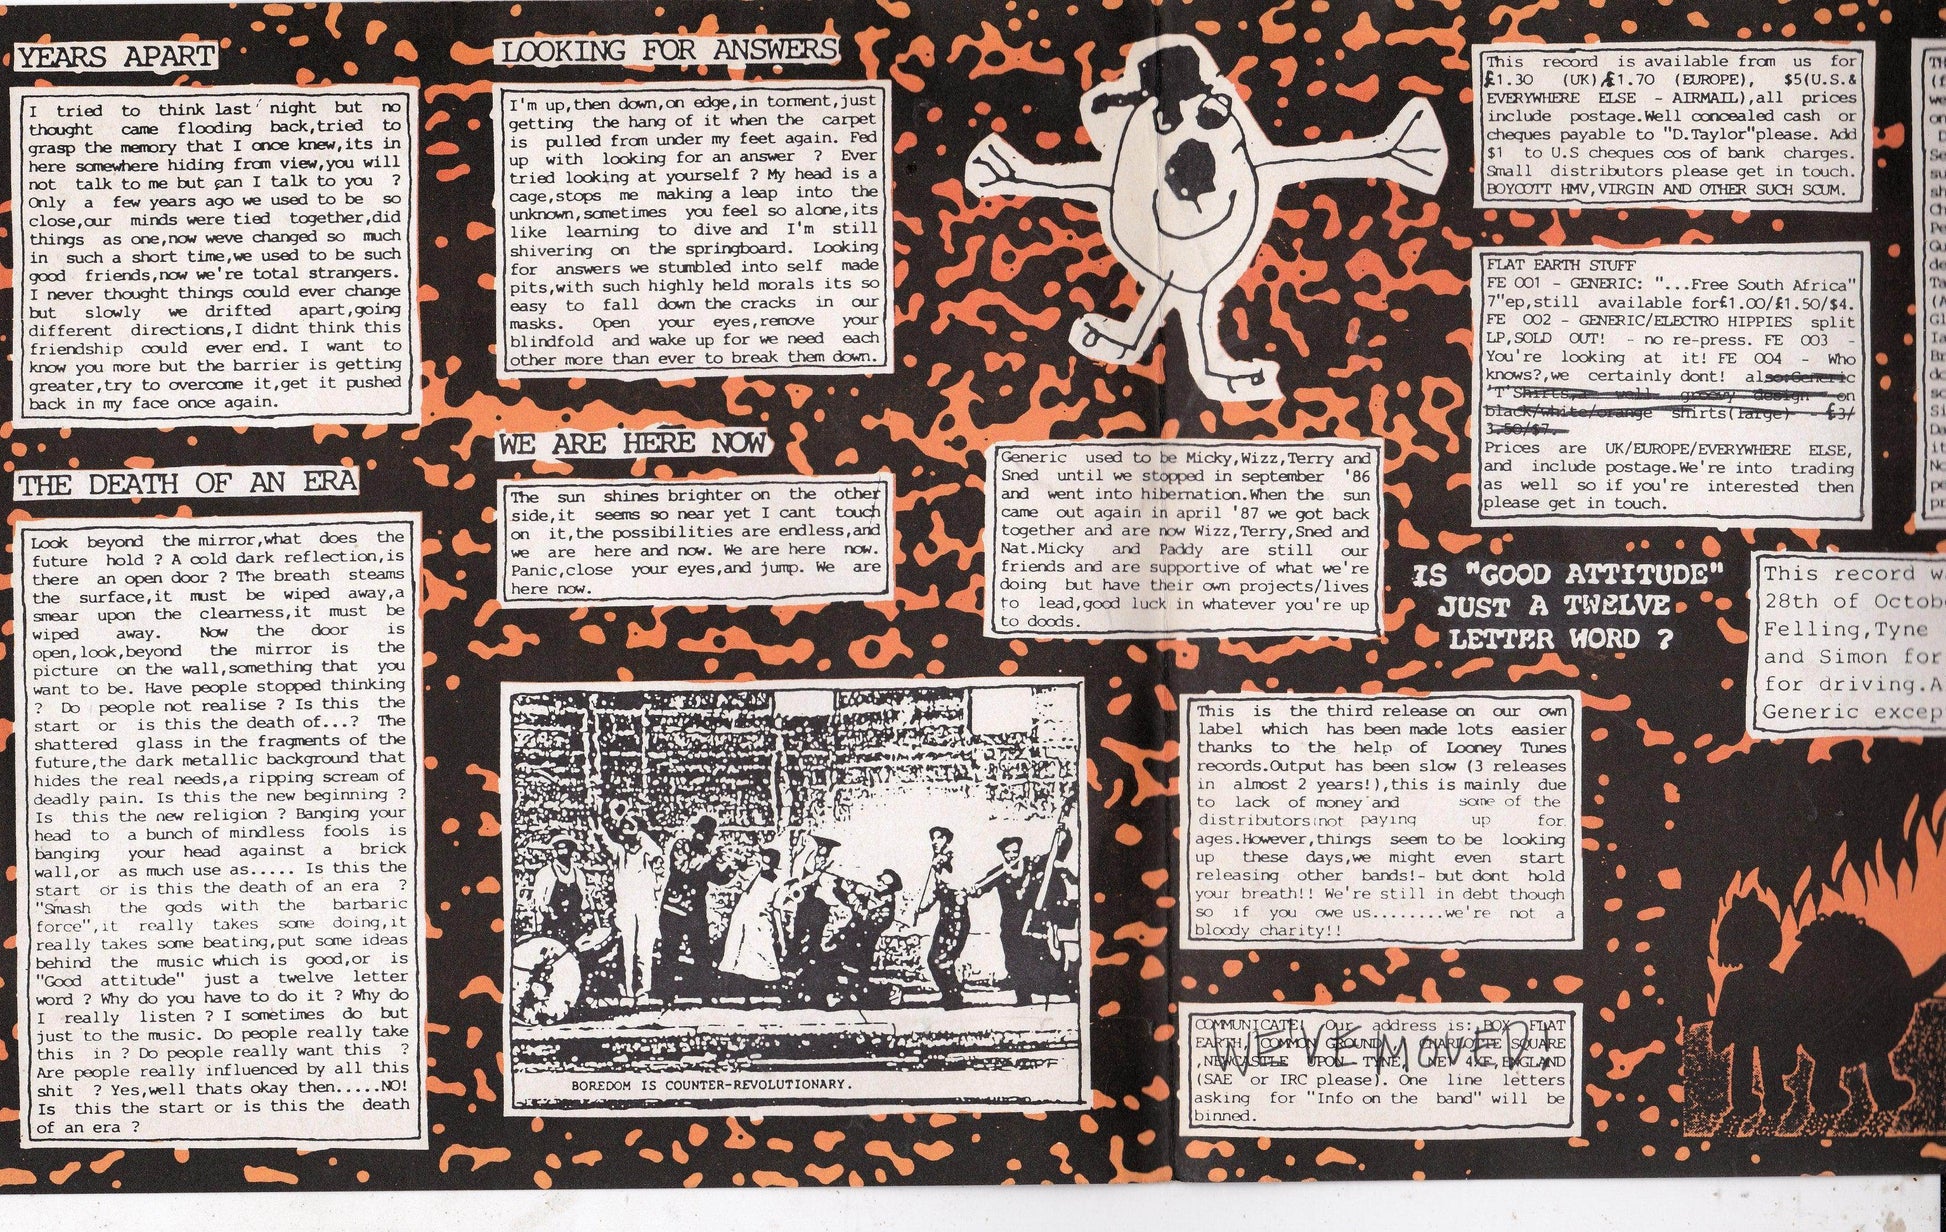 YEARS APART
I tried to think last night but no
thought came flooding back,tried to
grasp the memory that I once knew,its in
here somewhere hiding from view,you will
not talk to me but can I talk to you ?
Only a few years ago we used to be so
close,our minds were tied together,did
things as one,now weve changed so much
in such a short time,we used to be such
good friends,now we're total strangers.
I never thought things could ever change
but slowly we drifted apart,going
different directions,I didnt think this
friendship could ever end. I want to
know you more but the barrier is getting
greater,try to overcome it,get it pushed
back in my face once again.
THE DEATH OF AN ERA
Look beyond the mirror,what does the
future hold ? A cold dark reflection,is
there an open door ? The breath steams
the surface,it must be wiped away,a
smear upon the clearness,it must be
wiped away. Now the door is
open,look,beyond the mirror is the
picture on the wall,something that you
want to be. Have people stopped thinking
? Do people not realise ? Is this the
start or is this the death of...? The
shattered glass in the fragments of the
future,the dark metallic background that
hides the real needs,a ripping scream of
deadly pain. Is this the new beginning ?
Is this the new religion ? Banging your
head to a bunch of mindless fools is
banging your head against a brick
wall,or as much use as..... Is this the
start or is this the death of an era ?
"Smash the gods with the barbaric
force",it really takes some doing,it
really takes some beating,put some ideas
behind the music which is good,or is
"Good attitude" just a twelve letter
word ? Why do you have to do it ? Why do
I really listen ? I sometimes do but
just to the music. Do people really take
this in ? Do people really want this ?
Are people really influenced by all this
shit ? Yes,well thats okay then.....NO!
Is this the start or is this the death
of an era ?
LOOKING FOR ANSWERS
I'm up,then down,on edge,in torment,just
getting the hang of it when the carpet
is pulled from under my feet again. Fed
up with looking for an answer ? Ever
tried looking at yourself ? My head is a
cage,stops me making a leap into the
unknown,sometimes you feel so alone,its
like learning to dive and I'm still
shivering on the springboard. Looking
for answers we stumbled into self made
pits,with such highly held morals its so
easy to fall down the cracks in our
masks. Open your eyes,remove your
blindfold and wake up for we need each
other more than ever to break them down.
WE ARE HERE NOW
The sun shines brighter on the other
side,it seems so near yet I cant touch
on it,the possibilities are endless,and
we are here and now. We are here now.
Panic,close your eyes,and jump. We are
here now.
BOREDOM IS COUNTER-REVOLUTIONARY.
Generic used to be Micky,Wizz,Terry and
Sned until we stopped in september '86
and went into hibernation.When the sun
came out again in april '87 we got back
together and are now Wizz,Terry,Sned and
Nat.Micky and Paddy are still our
friends and are supportive of what we're
doing but have their own projects/lives
to lead,good luck in whatever you're up
to doods.
This record is available from us for
£1.30 (UK),£1.70 (EUROPE), $5(U.S.&
EVERYWHERE ELSE - AIRMAIL),all prices
include postage.Well concealed cash or
cheques payable to "D.Taylor"please. Add
$1 to U.S cheques cos of bank charges.
Small distributors please get in touch.
BOYCOTT HMV,VIRGIN AND OTHER SUCH SCUM.
FLAT EARTH STUFF
FE 001 - GENERIC: "...Free South Africa"
7"ep,still available for£1.00/£1.50/$4.
FE 002 - GENERIC/ELECTRO HIPPIES split
LP,SOLD OUT! - no re-press. FE 003 -
You're looking at it! FE 004 - Who
knows?,we certainly dont! also:Generic
'T'Shirts,a well groovy design on
black/white/orange shirts(large) - £3/
3.50/$7.
Prices are UK/EUROPE/EVERYWHERE ELSE,
and include postage.We're into trading
as well so if you're interested then
please get in touch.
IS "GOOD ATTITUDE"
JUST A TWELVE
LETTER WORD ?
This is the third release on our own
label which has been made lots easier
thanks to the help of Looney Tunes
records.Output has been slow (3 releases
in almost 2 years!),this is mainly due
to lack of money and some of the
distributors not paying up for
ages.However,things seem to be looking
up these days,we might even start
releasing other bands!- but dont hold
your breath!! We're still in debt though
so if you owe us........we're not a
bloody charity!!
COMMUNICATE! Our address is: BOX FLAT
EARTH, COMMON GROUND, CHARLOTTE SQUARE
,NEWCASTLE UPON TYNE, NE1 4XF,ENGLAND
(SAE or IRC please). One line letters
asking for "Info on the band" will be
binned.
WE'VE MOVED!
This record w
28th of Octob
Felling,Tyne
and Simon for
for driving.A
Generic excep